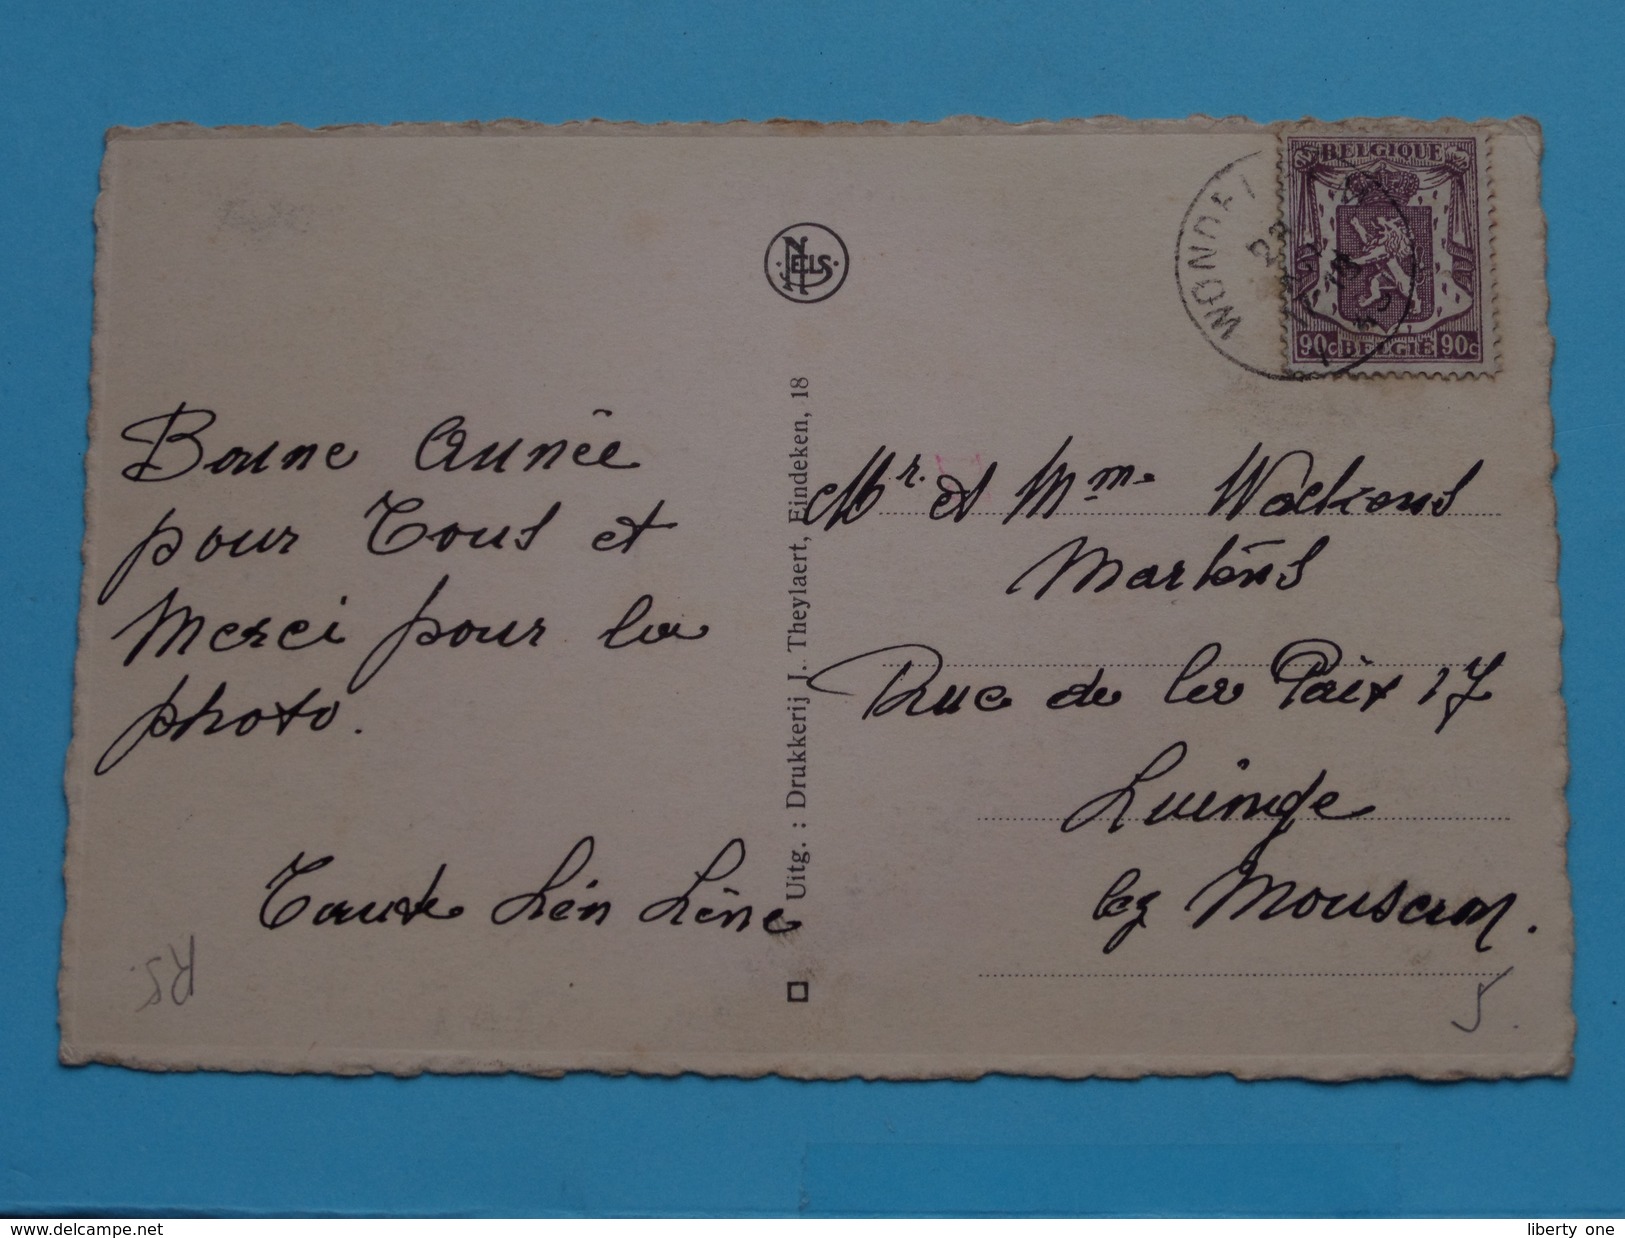 Bonne année
pour Tous et
Merci pour la
photo.
Tante Lén Lêne
RS.
NELS
Uitg. : Drukkerij J. Theylaert, Eindeken, 18
BELGIQUE
90c BELGIE 90c
Mr. et Mme Wackens
Martens
Rue de la Paix 17
Luinge
lez Mouscron.
5.
www.delcampe.net
liberty_one